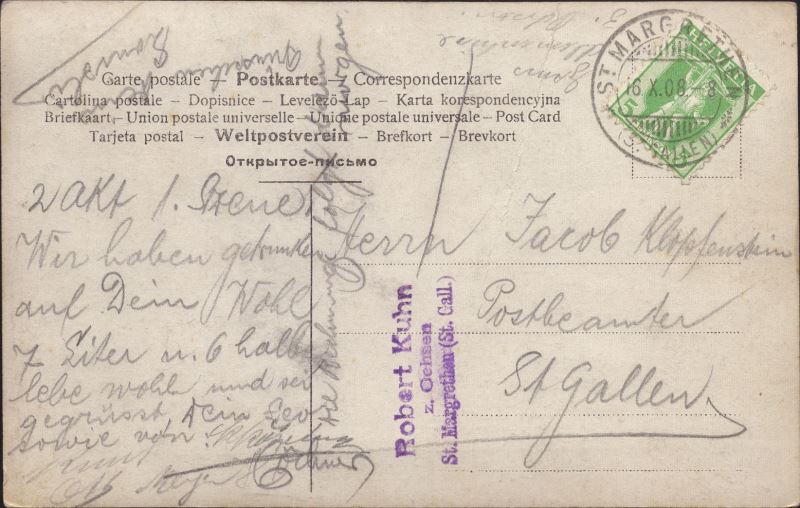 Carte postale – Postkarte – Correspondenzkarte
Cartolina postale – Dopisnice – Levelező-Lap – Karta korespondencyjna
Briefkaart – Union postale universelle – Unione postale universale – Post Card
Tarjeta postal – Weltpostverein – Brefkort – Brevkort
Открытое-письмо
ST MARGRETHEN
16.X.08. – 8
HELVETIA
5
2 Akt 1. Szene
Wir haben getrunken
auf Dein Wohl
7 Liter u. 6 halbe
lebe wohl und sei
gegrüsst, Dein
sowie von
Die Rechnung folgt
morgen
Herrn Jacob Klopfenstein
Postbeamter
St Gallen
Robert Kuhn
z. Ochsen
St. Margrethen (St. Gall.)